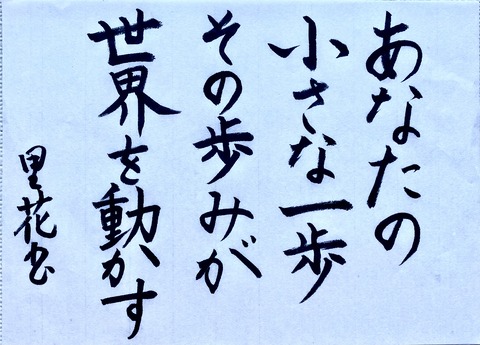 あなたの
小さな一歩
その歩みが
世界を動かす
里花書